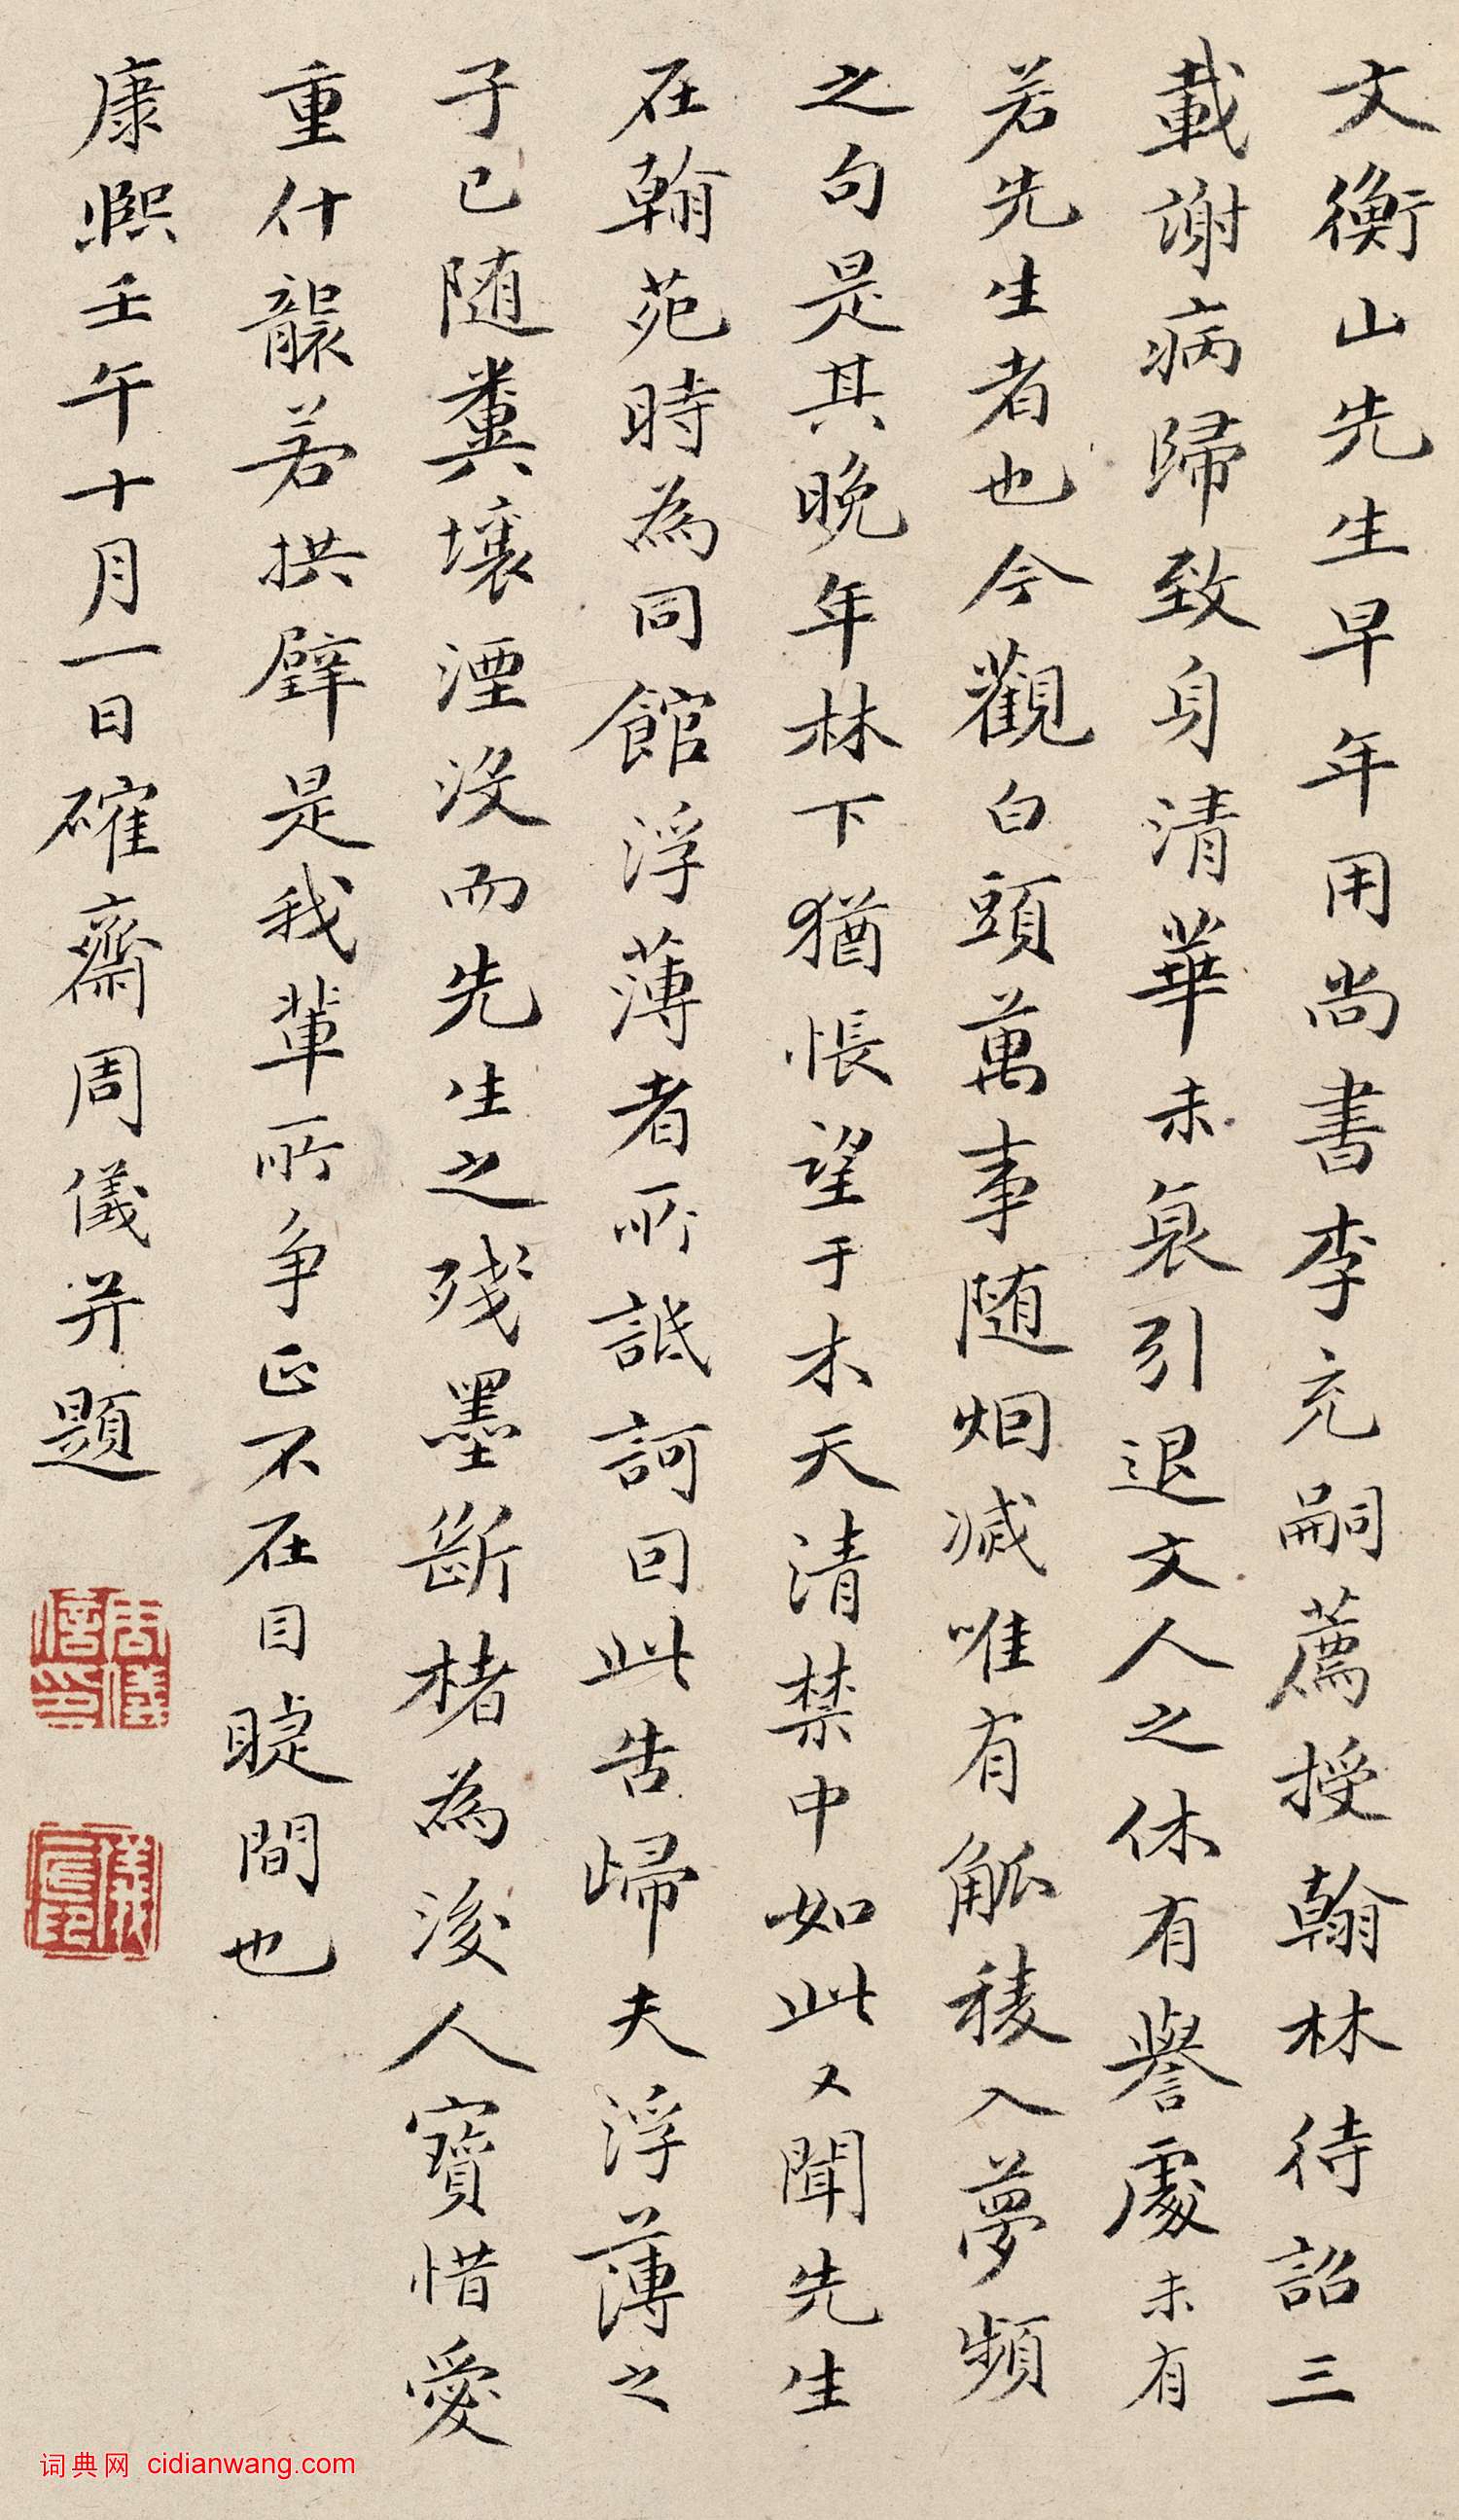 文衡山先生早年用尚書李充嗣薦授翰林待詔三
載謝病歸致身清華未衰引退文人之休有譽處未有
若先生者也今觀白頭萬事随烟滅唯有觚稜入夢頻
之句是其晚年林下猶悵望于木天清禁中如此又聞先生
在翰苑時為同館浮薄者所詆訶回此告歸夫浮薄之
子已随糞壤湮没而先生之殘墨斷楮為後人寶惜愛
重什襲若拱璧是我輩所争正不在目睫間也
康熙壬午十月一日確齋周儀并題
周儀
詞典网 cidianwang.com